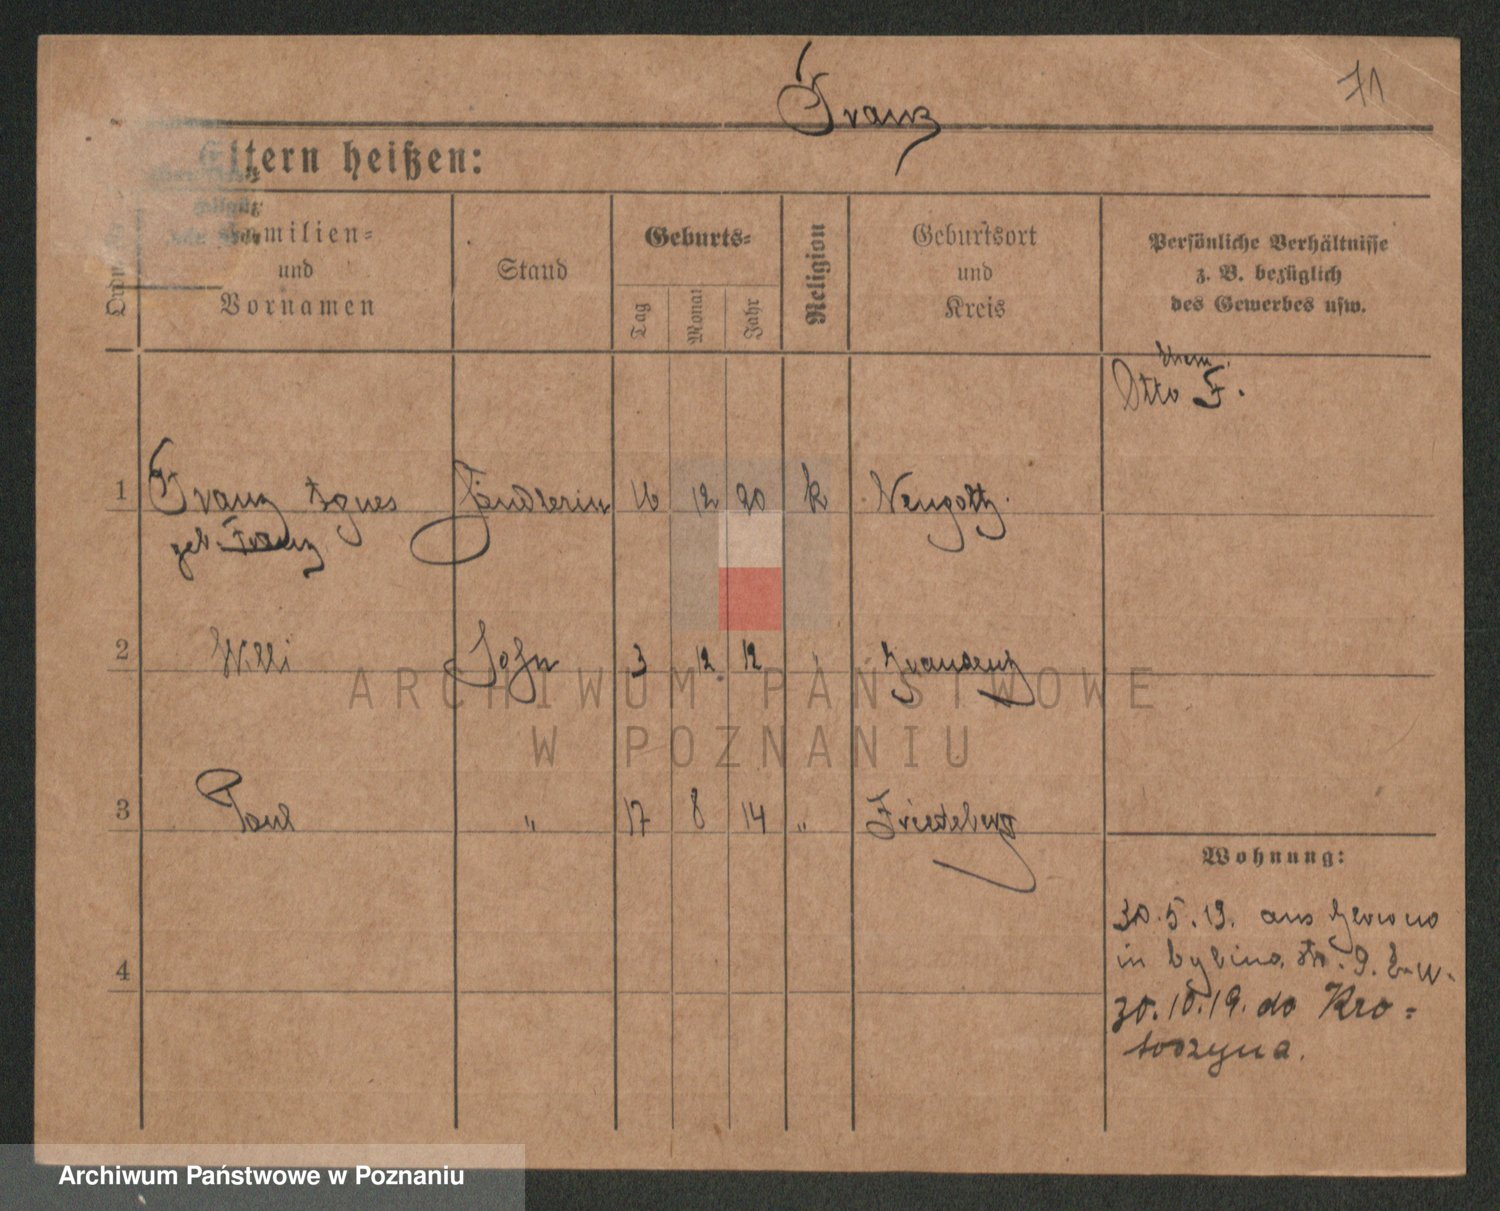 Franz
71
Eltern heißen:
Familien=
und
Vornamen
Stand
Geburts=
Tag
Monat
Jahr
Religion
Geburtsort
und
Kreis
Persönliche Verhältnisse
z. B. bezüglich
des Gewerbes usw.
Ehem.
Otto F.
1 Franz Agnes Händlerin 16 12 90 k
geb. Franz
2 Willi Sohn 3 12 12 " Graudenz
3 Paul " 17 8 14 " Friedeberg
4
Wohnung:
30.5.19. aus
in 9.
30.10.19. do Kro=
toszyna.
ARCHIWUM PAŃSTWOWE
W POZNANIU
Archiwum Państwowe w Poznaniu